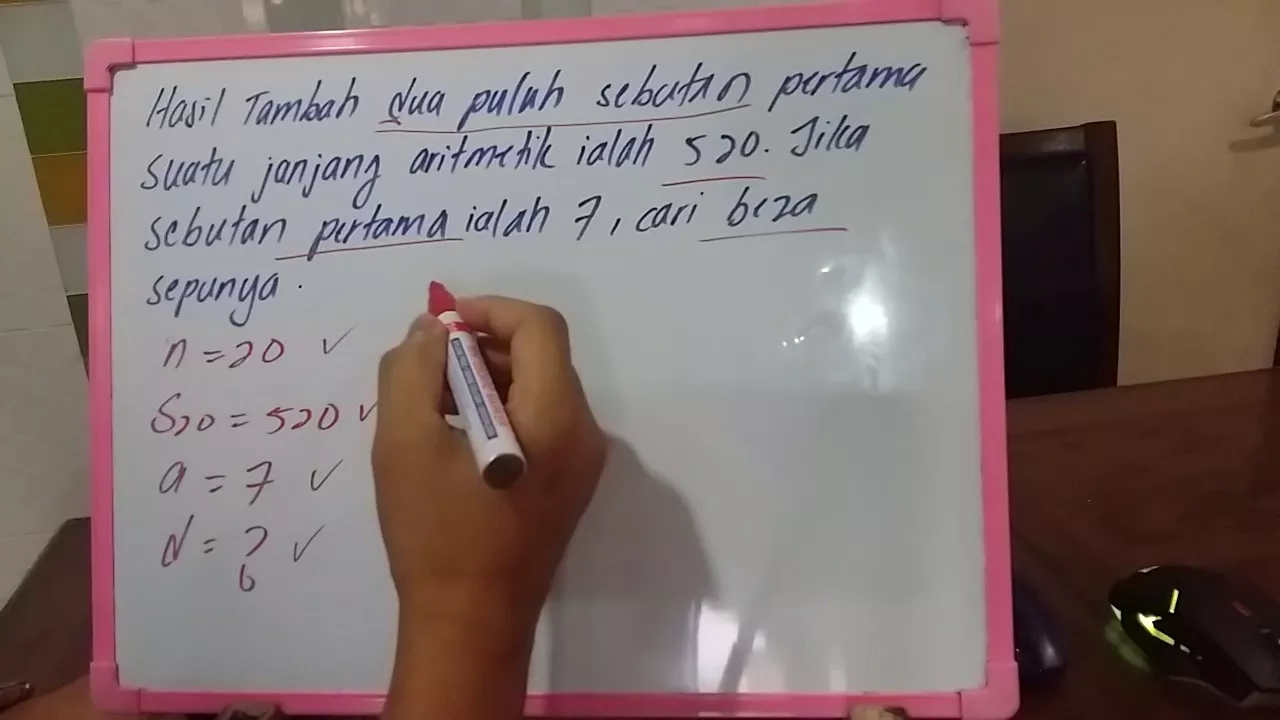 Hasil Tambah dua puluh sebutan pertama
suatu janjang aritmetik ialah 520. Jika
sebutan pertama ialah 7, cari beza
sepunya.
n = 20 ✓
S20 = 520 ✓
a = 7 ✓
d = ? ✓